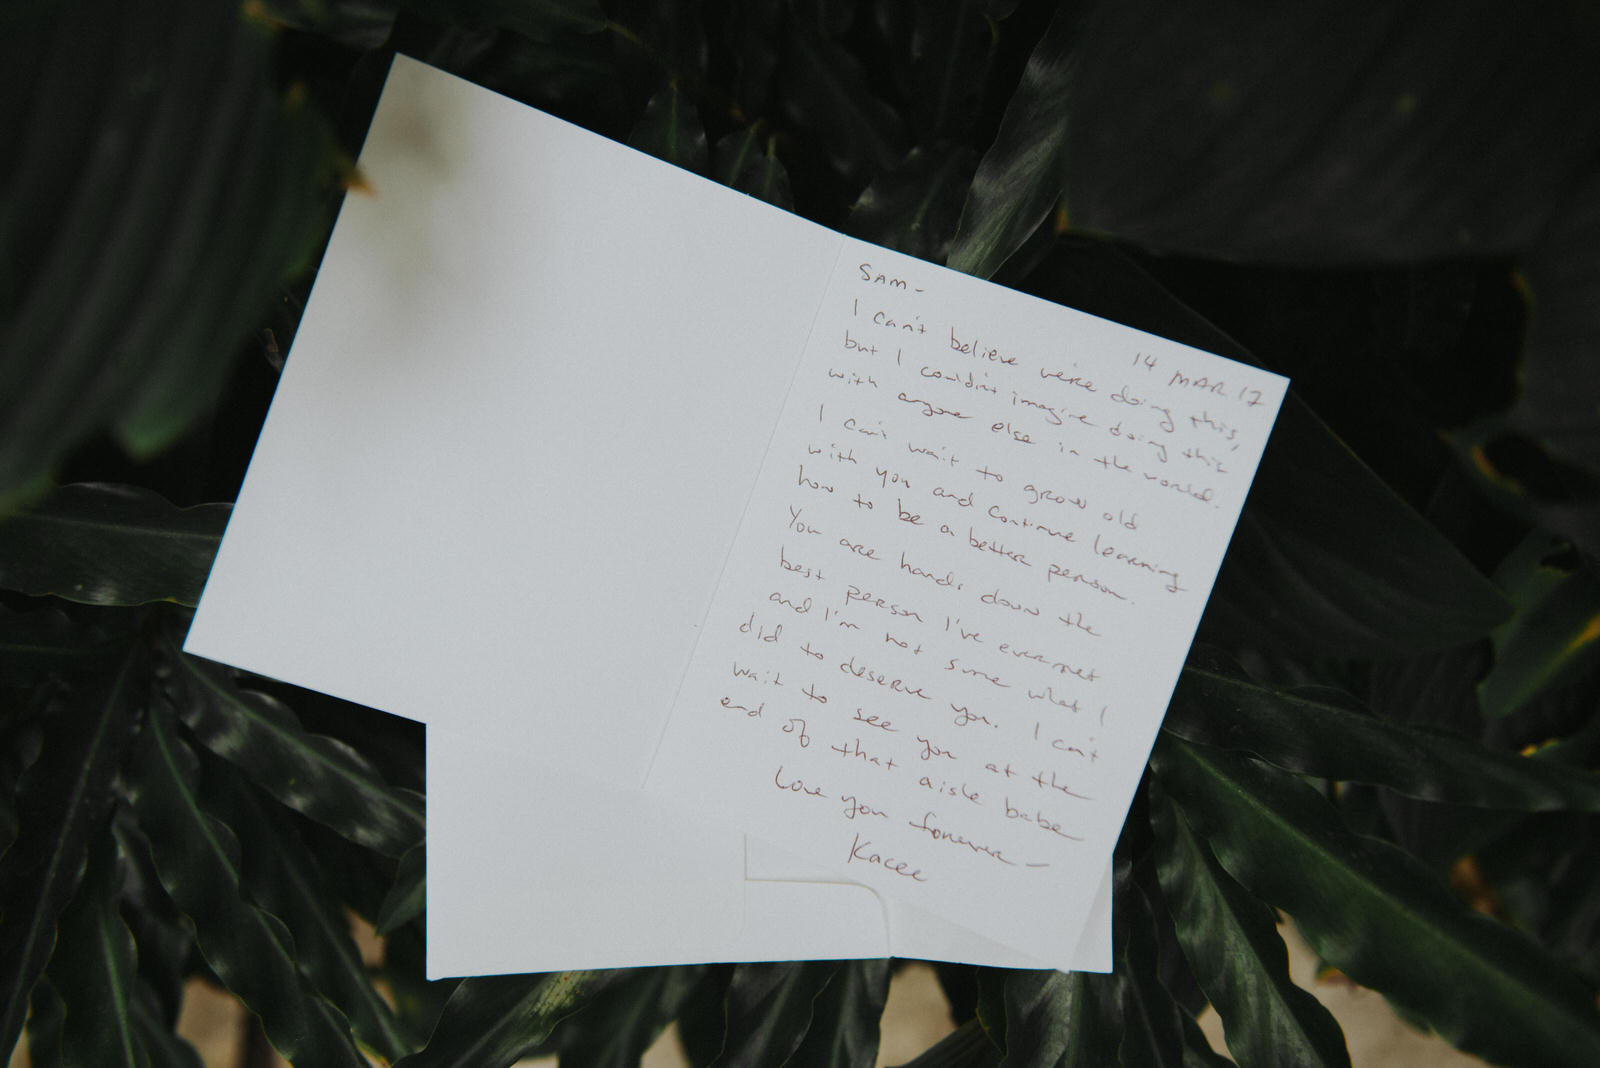 SAM-
14 MAR 17
I can't believe we're doing this,
but I couldn't imagine doing this
with anyone else in the world.
I can't wait to grow old
with you and continue learning
how to be a better person.
You are hands down the
best person I've ever met
and I'm not sure what I
did to deserve you. I can't
wait to see you at the
end of that aisle babe
Love you forever-
Kacee